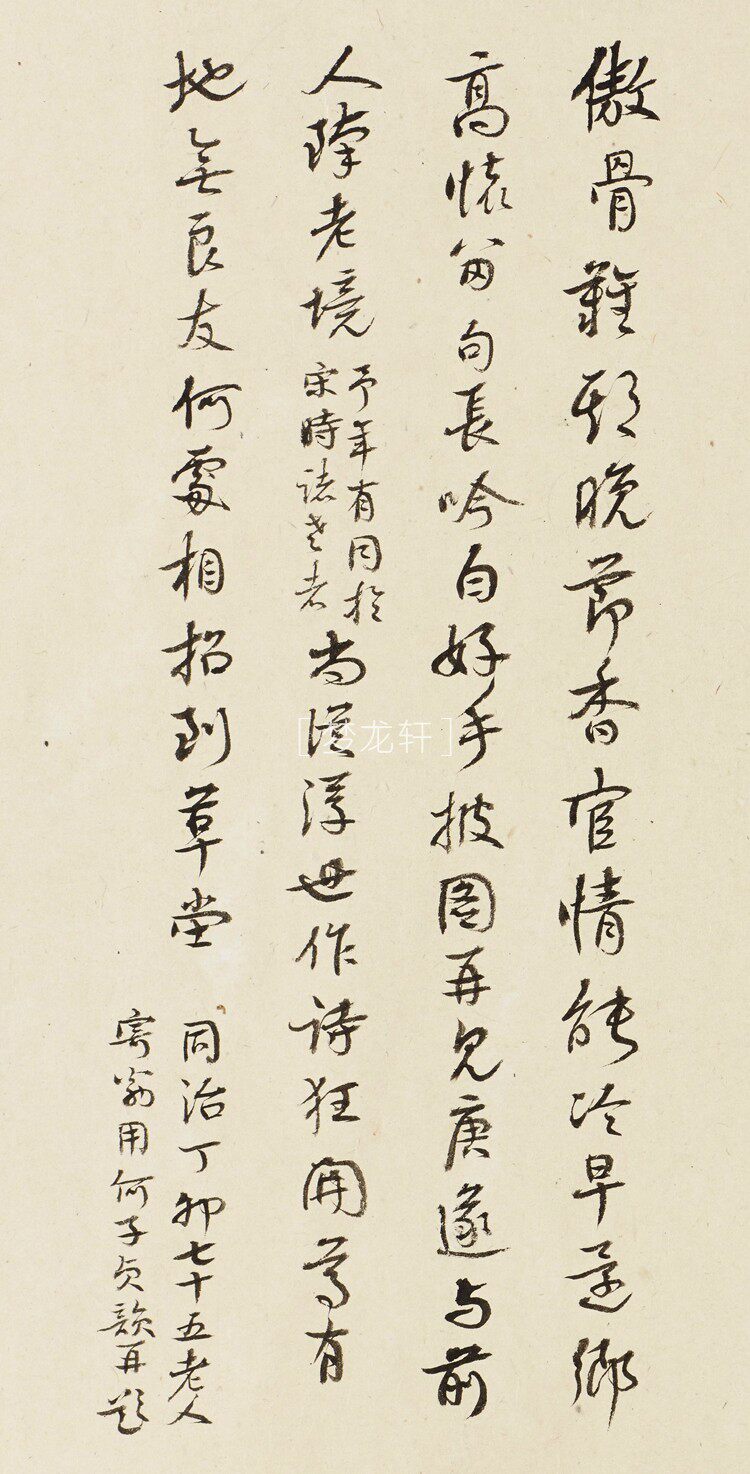 傲骨難期晚節香官情能冷早還鄉
高懷留句長吟白好手披圖再見唐遂與前
人臻老境
予年有同於
宋時諸耆老
尚從浮世作詩狂開尊有
地無良友何處相招到草堂
同治丁卯七十五老人
寄翁用何子貞韻再題
龙轩